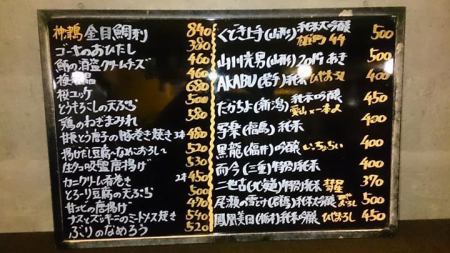 神鶏 金目鯛刺 840
ゴーヤのおひたし 380
酒盗クリームチーズ 460
460
680
桜ユッケ 500
とうもろこしの天ぷら
鶏のねぎまみれ 480
甘長とう唐子の豚巻き焼き 2本
揚げだし豆腐〜なめこおろし 520
唐揚げ 530
カニクリーム春巻き 2本 450
とろーり豆腐の天ぷら 500
唐揚げ 470
ナスとズッキーニのミートソース焼き 540
ぶりのなめろう 520
くどき上手(山形)純米大吟醸 雄町44 500
山川光男(山形)2017 あき 500
AKABU(岩手)純米 ひやおろし 400
たかちよ(新潟)純米大吟醸 450
写楽(福島)純米 400
黒龍(福井)吟醸 いっちょらい 400
而今(三重)特別純米 400
二世古(北海道)特別純米 370
尾瀬の雪どけ(群馬)純米大吟醸 500
鳳凰美田(栃木)純米吟醸 ひやおろし 450